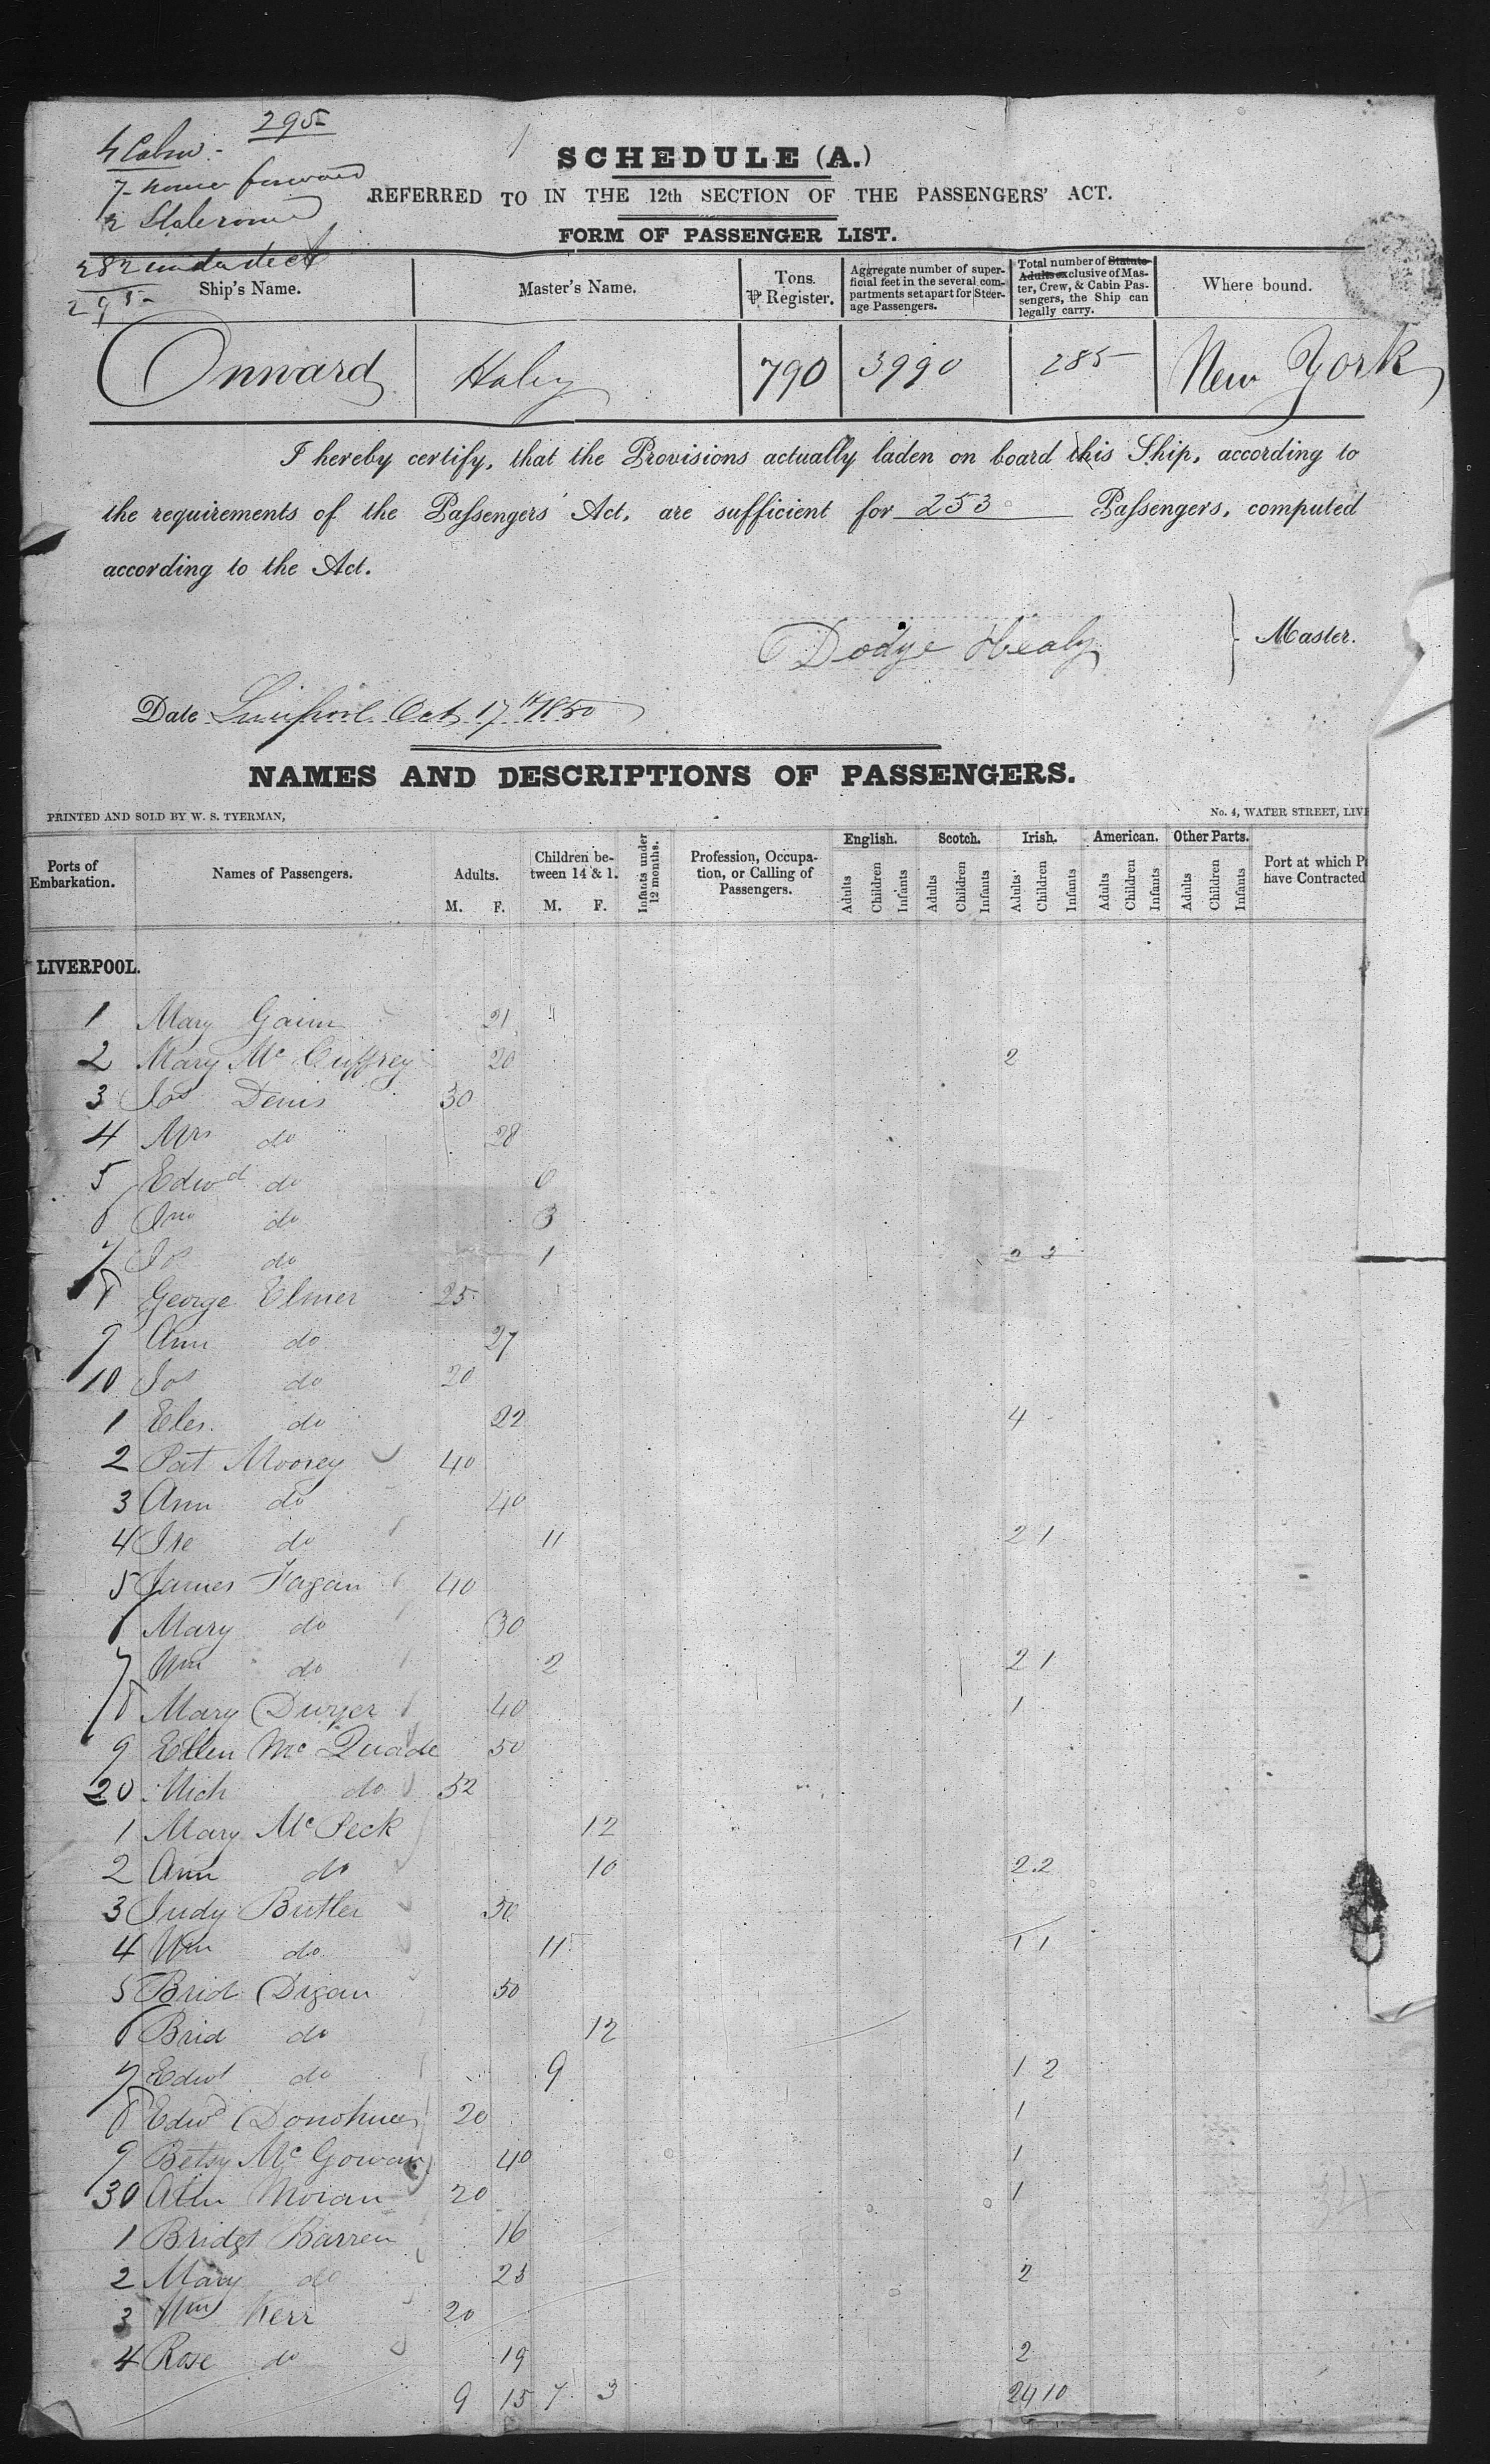 295
4 Cabin -
7 house forward
2 Stateroom
282 under deck
295
SCHEDULE (A.)
REFERRED TO IN THE 12th SECTION OF THE PASSENGERS' ACT.
FORM OF PASSENGER LIST.
Ship's Name. Master's Name. Tons ⅌ Register. Aggregate number of superficial feet in the several compartments set apart for Steerage Passengers. Total number of Statute Adults exclusive of Master, Crew, & Cabin Passengers, the Ship can legally carry. Where bound.
Onward Haley 790 3990 285 New York
I hereby certify, that the Provisions actually laden on board this Ship, according to
the requirements of the Passengers' Act, are sufficient for 253 Passengers, computed
according to the Act.
Dodge Healy } Master.
Date Liverpool Oct 17th 1850
NAMES AND DESCRIPTIONS OF PASSENGERS.
PRINTED AND SOLD BY W. S. TYERMAN, No. 4, WATER STREET, LIVE
Ports of Embarkation. Names of Passengers. Adults. M. F. Children between 14 & 1. M. F. Infants under 12 months. Profession, Occupation, or Calling of Passengers. English. Adults Children Infants Scotch. Adults Children Infants Irish. Adults Children Infants American. Adults Children Infants Other Parts. Adults Children Infants Port at which P have Contracted
LIVERPOOL.
1 Mary 21 "
2 Mary Mc Cuffrey 20 2
3 Jos Denis 30
4 Mrs do 28
5 Edwd do 6
6 Jno do 3
7 Jos do 1 2 3
8 George Elmer 25
9 Ann do 27
10 Jos do 20
1 Eles. do 22 4
2 Pat Moorey 40
3 Ann do 40
4 do 11 2 1
5 James Fagan 40
6 Mary do 30
7 Wm do 2 2 1
8 Mary Dwyer 40 1
9 Ellen Mc Quade 50
20 Mich do 52
1 Mary Mc Peck 12
2 Ann do 10 2.2
3 Judy Butler 50
4 Wm do 11 1 1
5 Brid Digan 50
6 Brid do 12
7 Edwd do 9 1 2
8 Edwd Donohue 20 1
9 Betsy Mc Gowan 40 1
30 Moran 20 1
1 Bridgt Barren 16
2 Mary do 23 2
3 Wm Kerr 20
4 Rose do 19 2
9 15 7 3 24 10